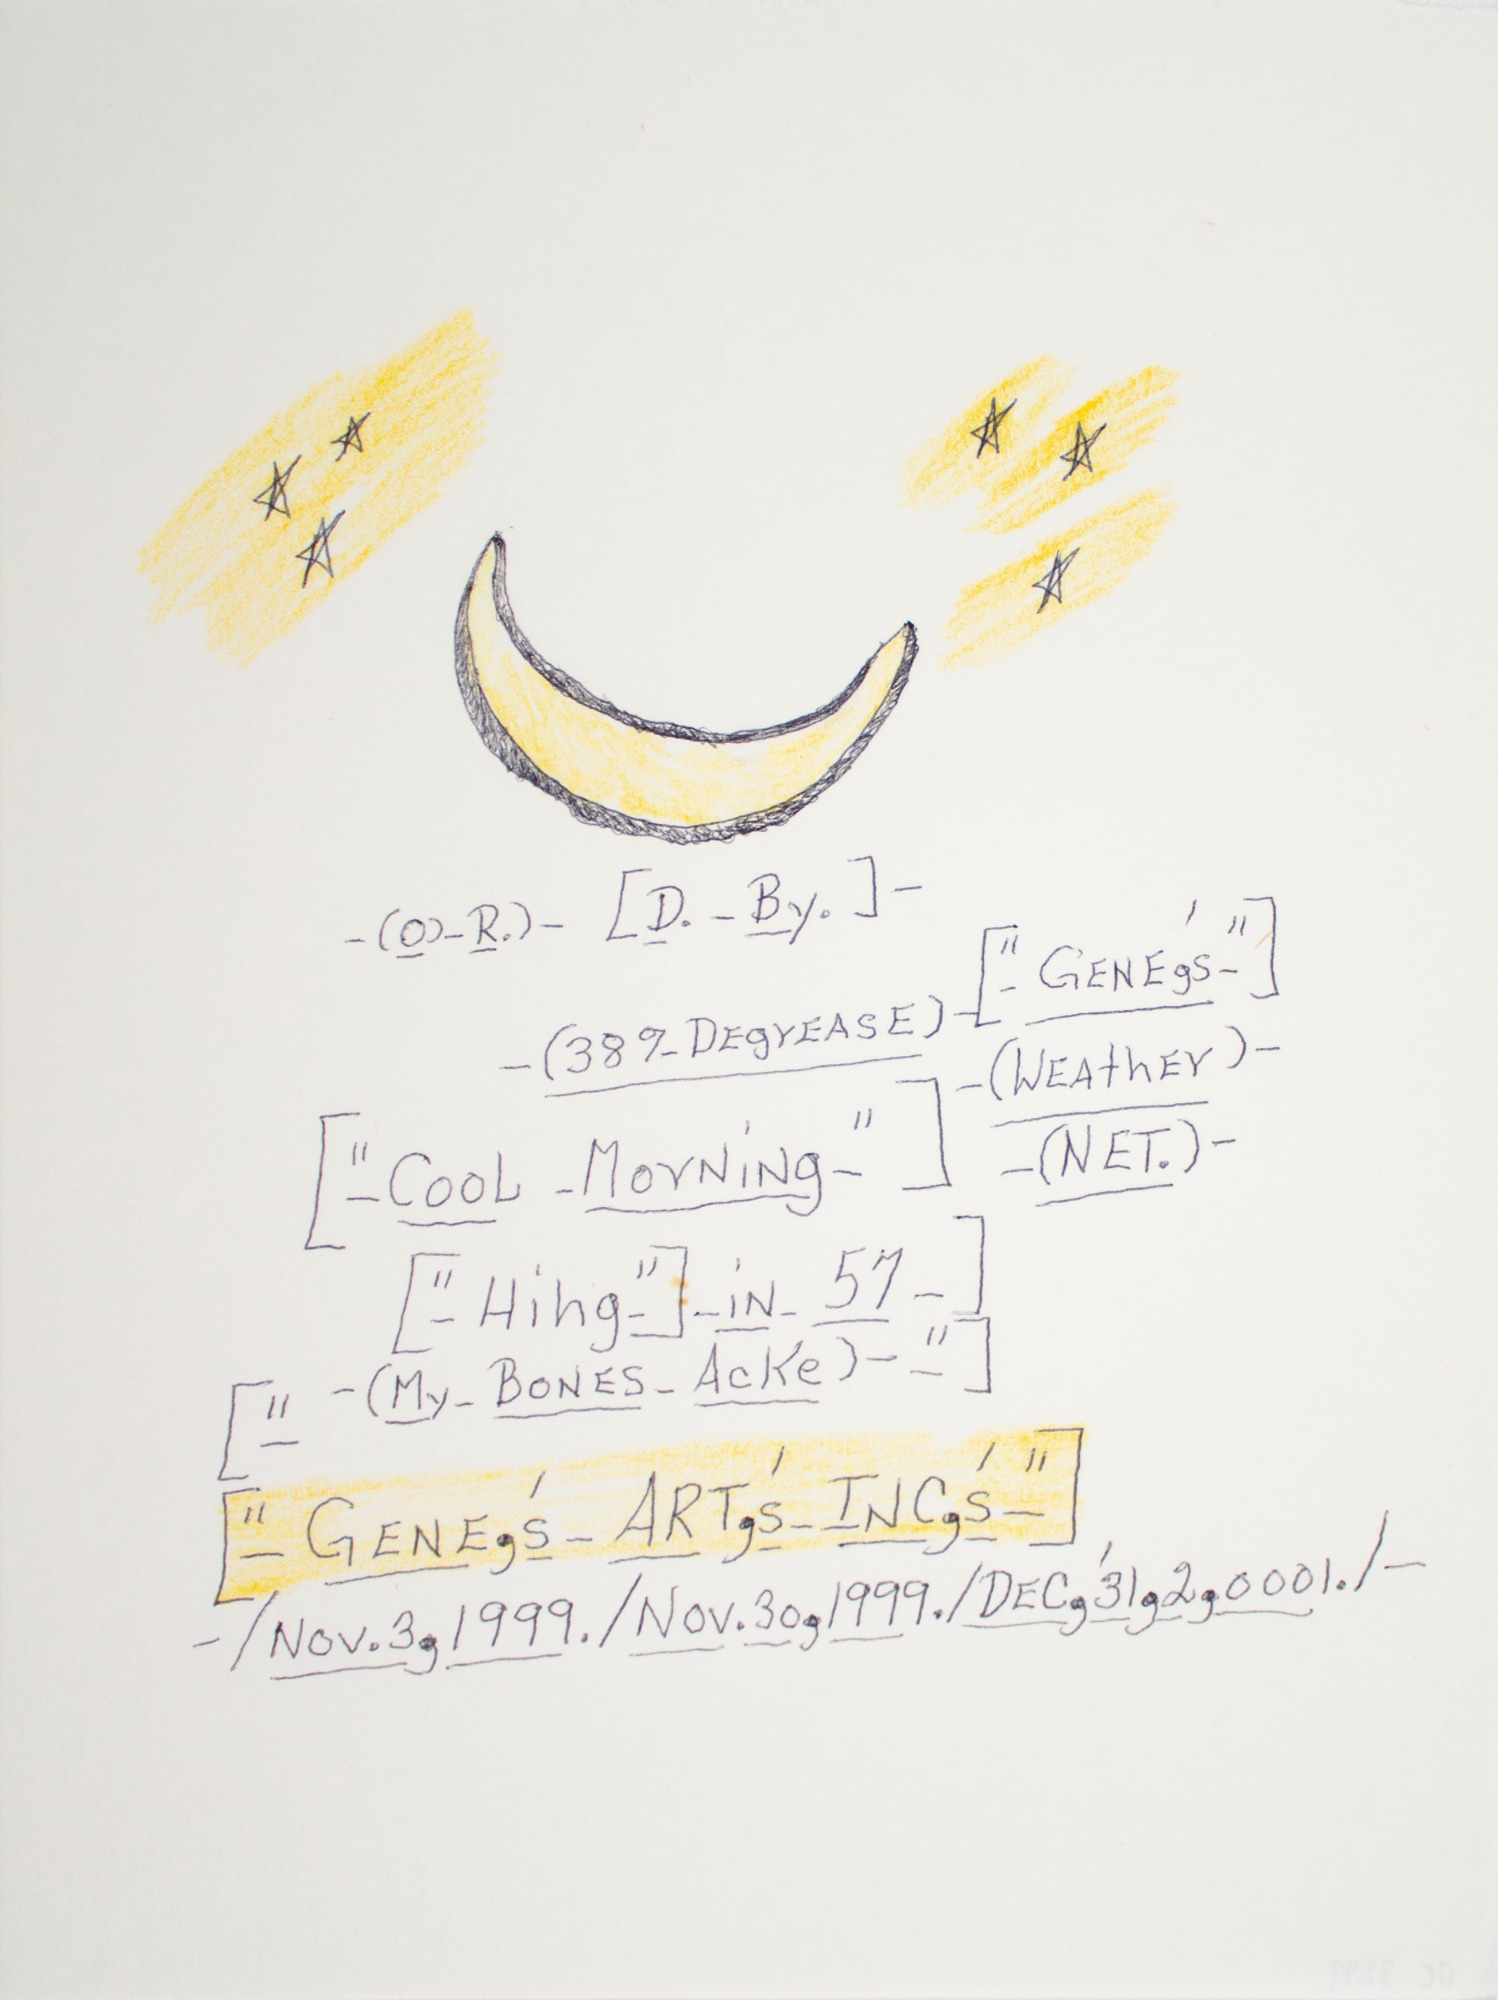 -(O)-R.)- [D.-By.]-
-(38%-DegrEASE)-["-GENEgs-'"]
-(WEAthEr)-
["-COOL -MorNiNg-"]
-(NET.)-
["-Hihg-"]-iN- 57-]
["- -(My-BONES-AcKe)- -"]
["-GENEg's-ARTg's-INCg's-"]
-/Nov.3g1999./Nov.30g1999./DECg'31g2g0001./-